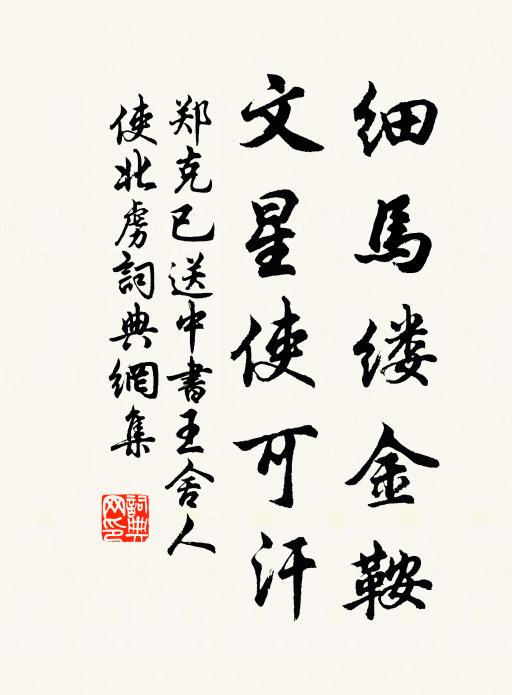 细馬缕金鞍
文星使可汗
郑克己送中書王舍人
使北虏詞典網集
詞典
网印